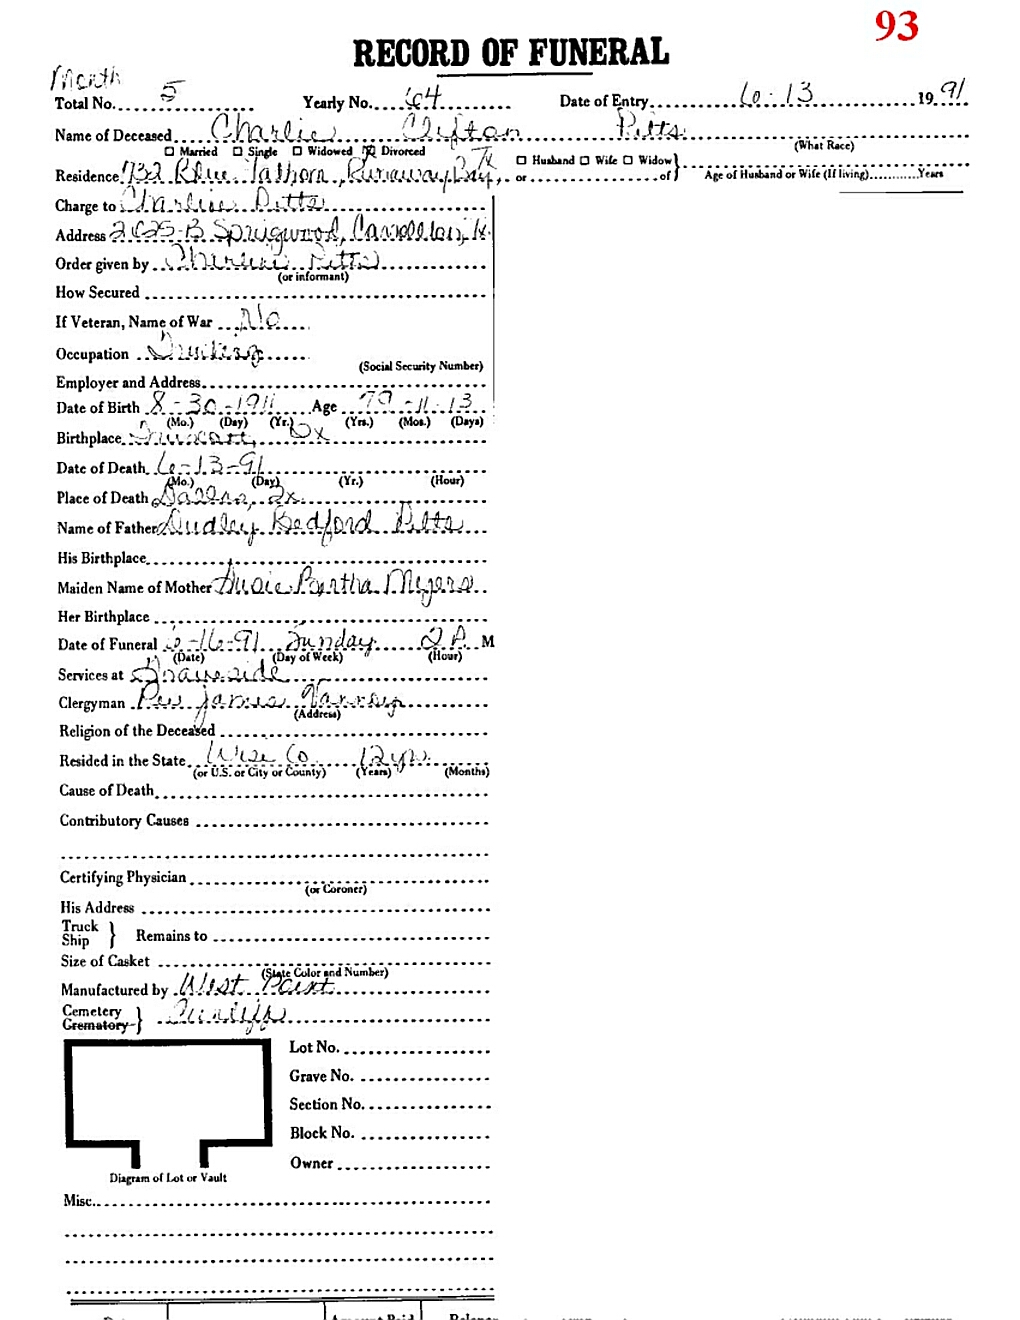 93
RECORD OF FUNERAL
Month
Total No. 5 Yearly No. 64 Date of Entry 6-13 1991
Name of Deceased Charlie Clifton Pitts
(What Race)
☐ Married ☐ Single ☐ Widowed ☒ Divorced ☐ Husband ☐ Wife ☐ Widow
Residence 732 Blue Fathom, Runaway Bay, Tx or of Age of Husband or Wife (If living) Years
Charge to Charlene Pitts
Address 2625-B Springwood, Carrollton, Tx.
Order given by Charlene Pitts
(or informant)
How Secured
If Veteran, Name of War No
Occupation
(Social Security Number)
Employer and Address
Date of Birth 8-30-1911 Age 79-11-13
(Mo.) (Day) (Yr.) (Yrs.) (Mos.) (Days)
Birthplace Truscott, Tx
Date of Death 6-13-91
(Mo.) (Day) (Yr.) (Hour)
Place of Death Dallas, Tx.
Name of Father Dudley Bedford Pitts
His Birthplace
Maiden Name of Mother Susie Bertha Myers
Her Birthplace
Date of Funeral 6-16-91 Sunday 2 P. M
(Date) (Day of Week) (Hour)
Services at Graveside
Clergyman Rev James
(Address)
Religion of the Deceased
Resided in the State Wise Co. 12 yrs.
(or U.S. or City or County) (Years) (Months)
Cause of Death
Contributory Causes
Certifying Physician
(or Coroner)
His Address
Truck
Ship } Remains to
Size of Casket
(State Color and Number)
Manufactured by West Point
Cemetery
Crematory }
Lot No.
Grave No.
Section No.
Block No.
Owner
Diagram of Lot or Vault
Misc.
Amount Paid Balance